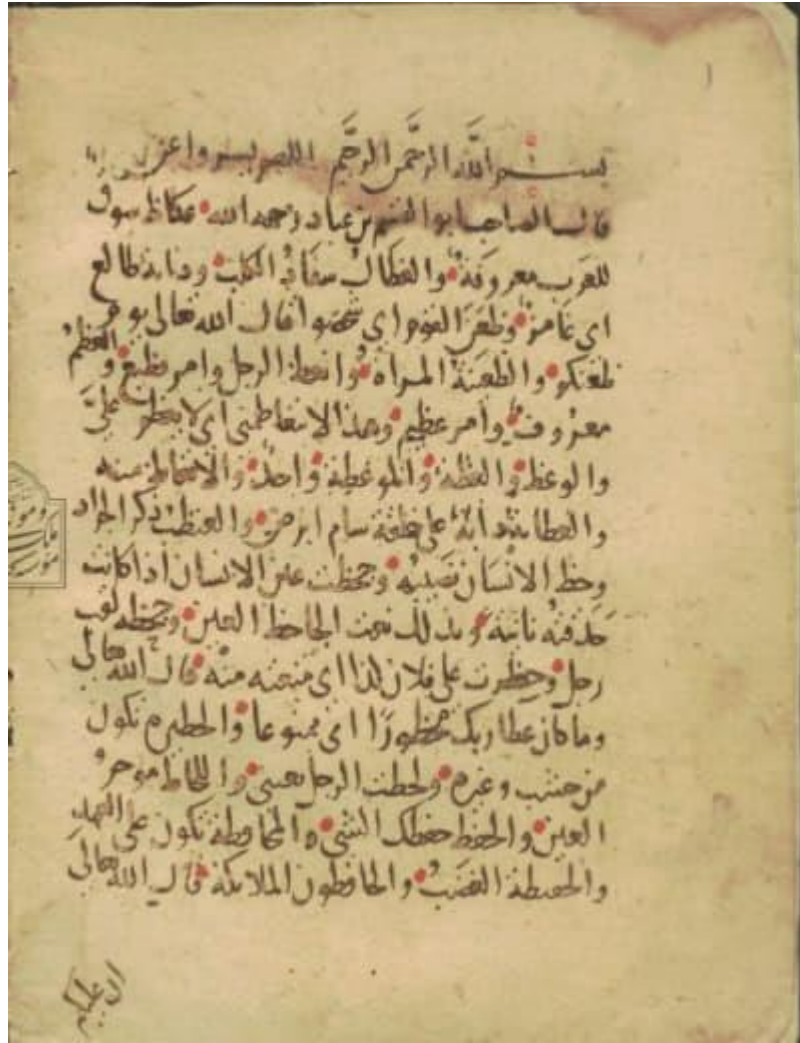 بسم الله الرحمن الرحيم اللهم يسر واعن
قال الصاحب ابو القسم بن عباد رحمه الله عكاظ سوق
للعرب معروفة والعظال سفاد الكلب ودابة ظالع
اي غامز وظعن القوم اي شخصوا قال الله تعالى يوم
ظعنكم والظعينة المراة وانعظ الرجل وامر فظيع والعظم
معروف وامر عظيم وهذا لا يتعاظمني اي لا يعظم علي
والوعظ والعظة والموعظة واحد والاتعاظ منه
والعظاية دابة على خلقة سام ابرص والعنظب ذكر الجراد
وحظ الانسان نصيبه وجحظت عين الانسان اذا كانت
حدقته ناتئة وبذلك نعت الجاحظ العين وجحظة لقب
رجل وحظرت على فلان كذا اي منعته منه قال الله تعالى
وما كان عطا ربك محظورا اي ممنوعا والحظيرة تكون
من خشب وغيره ولحظت الرجل بعيني واللحاظ موخر
العين والحفظ حفظك الشي والمحافظة تكون على العهد
والحفيظة الغضب والحافظون الملائكة قال الله تعالى
ان عليكم